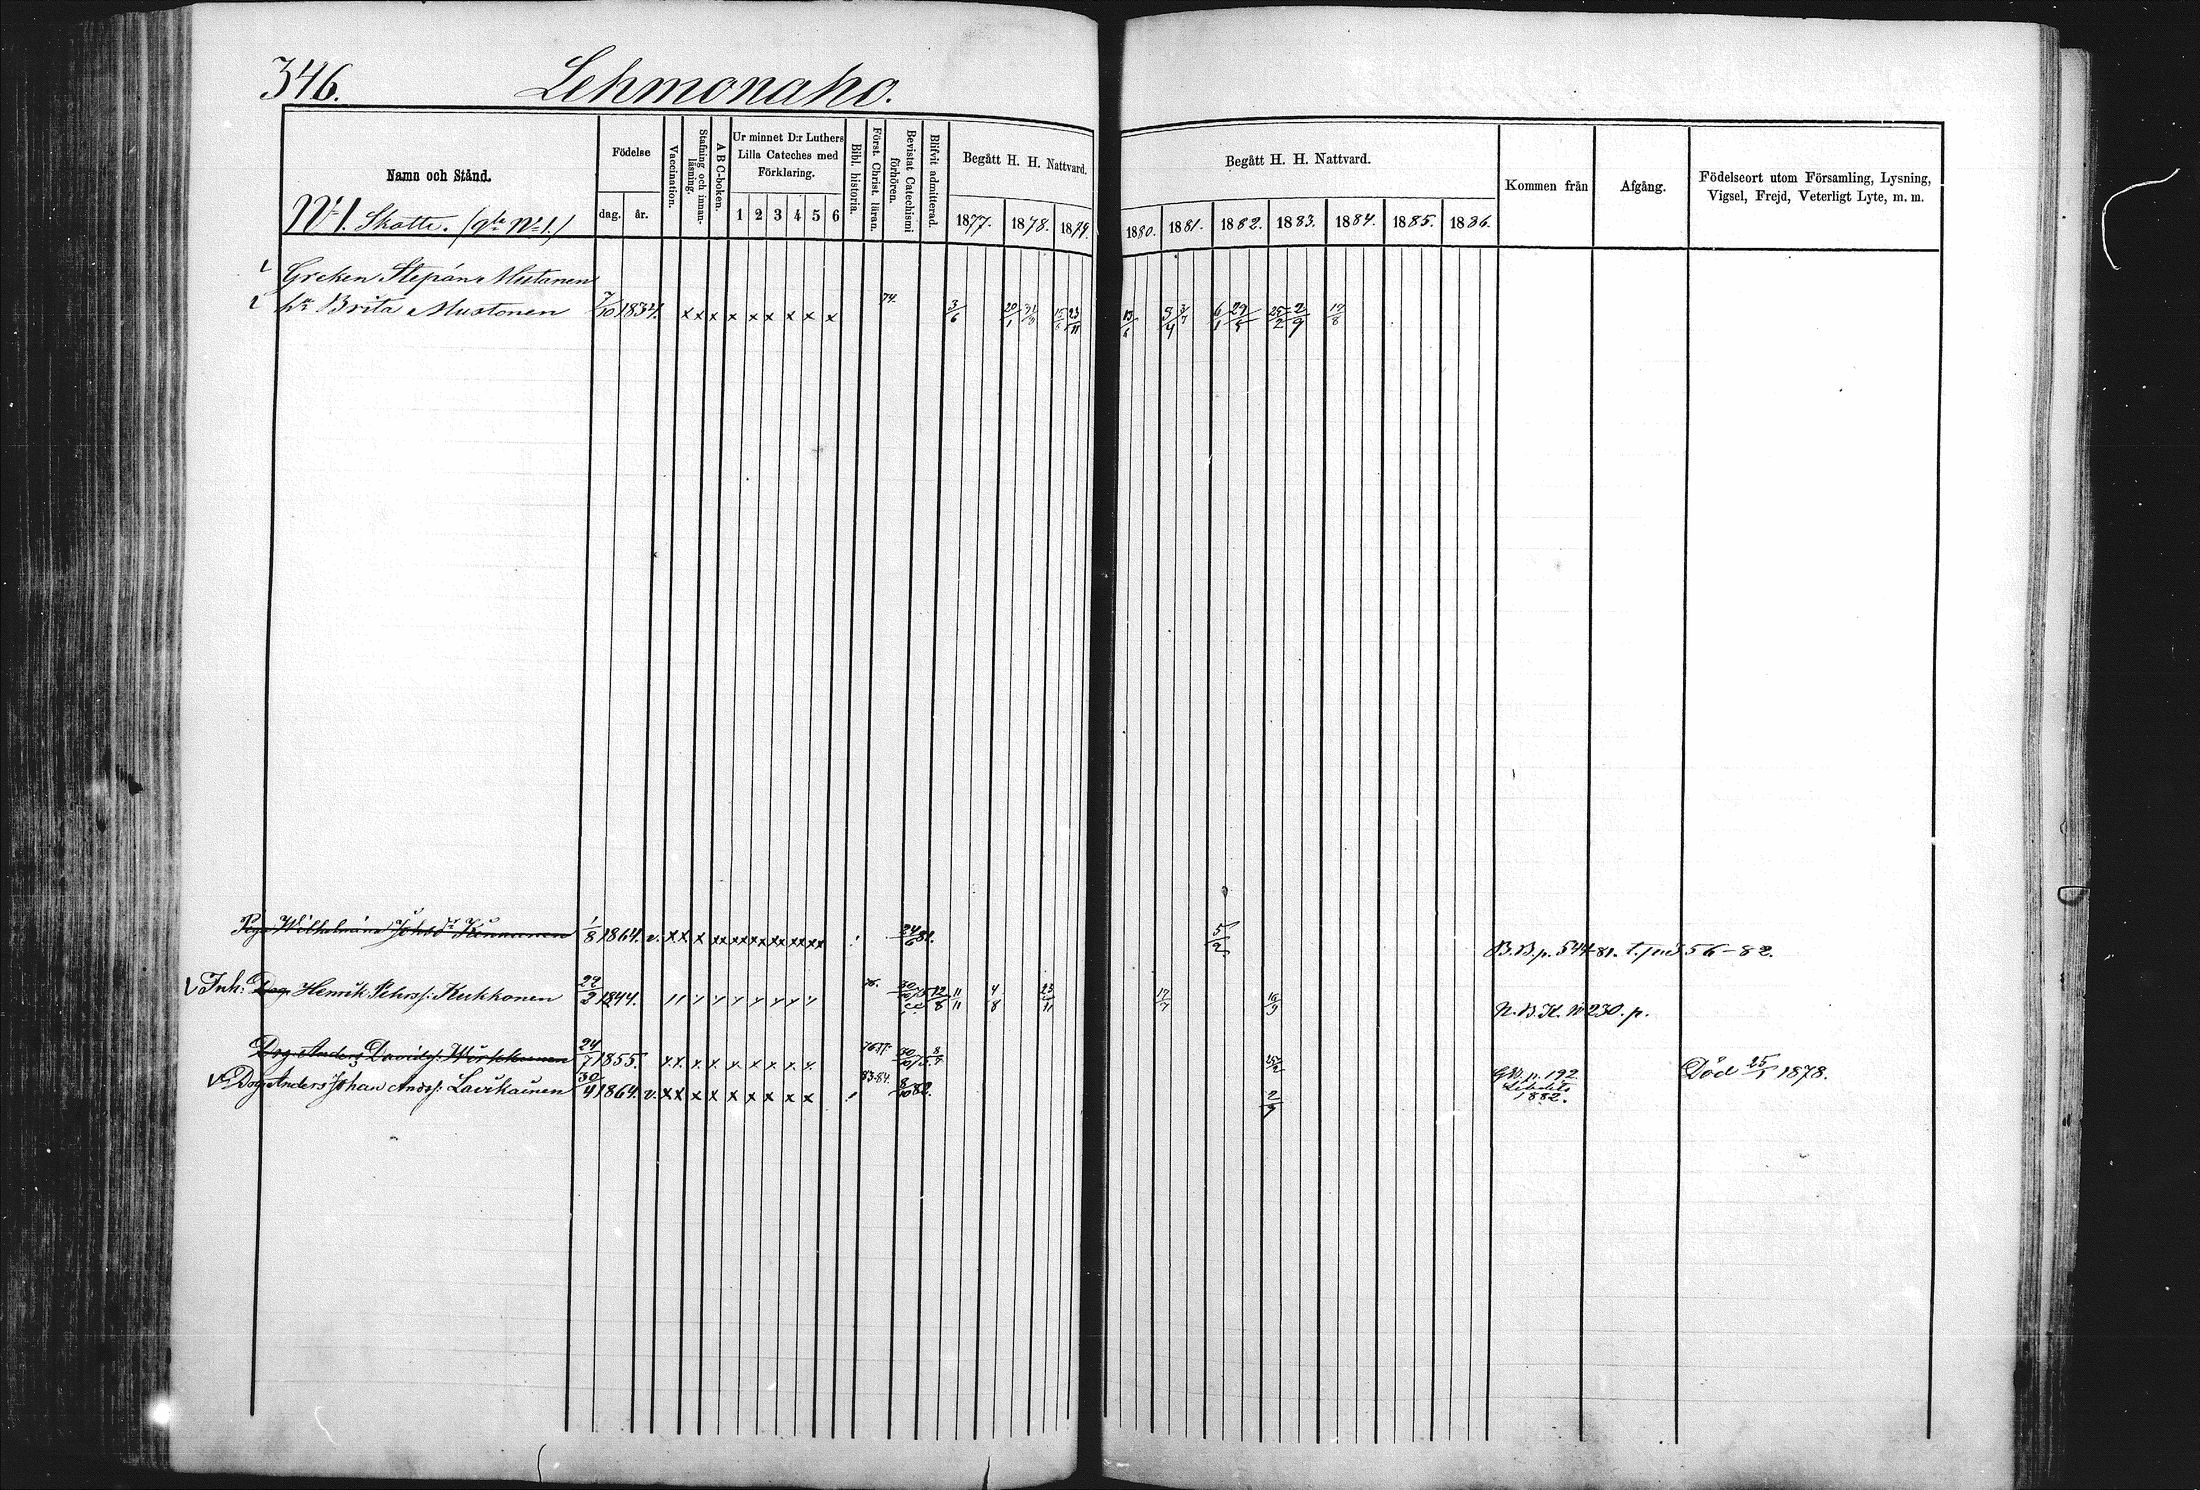 346. Lehmonaho.
Namn och Stånd.
Födelse
dag. år.
Vaccination.
Stafning och innanläsning.
A B C-boken.
Ur minnet D:r Luthers Lilla Cateches med Förklaring.
1 2 3 4 5 6
Bibl. historia.
Först. Christ. läran.
Bevistat Catechismi förhören.
Blifvit admitterad.
Begått H. H. Nattvard.
1877. 1878. 1879.
Begått H. H. Nattvard.
1880. 1881. 1882. 1883. 1884. 1885. 1886.
Kommen från
Afgång.
Födelseort utom Församling, Lysning, Vigsel, Frejd, Veterligt Lyte, m. m.
No 1. Skatte. (gle No 1.)
Greken Stepán Mustonen
h:u Brita Mustonen 7/10 1834. x x x x x x x x x 74. 3/6 20/1 31/3 23/11 13/6 3/4 3/7 6/1 29/5 25/2 2/9 19/8
Pig. Wilhelmina Johsdr Kinnunen 1/8 1864. v. x x x xx xx xx xx xx xx 24/6 81. 5/2 B.B.p. 544-81. 56-82.
Inh. Drg. Henrik Pehrss: Kukkonen 22/2 1844. 76. 30/10 75 12/8 11/11 4/8 23/11 17/7 16/9 N.B.K. No 230. p.
Drg. Anders Davidss: 24/7 1855. x x x x x x x x x 76.77. 30/10 75 8/7 25/2 Död 25/1 1878.
Drg. Anders Johan Andss: Lavikainen 30/4 1864. v. x x x x x x x x x 83.84. 8/10 82. 2/9 p. 192 Libelits 1882.